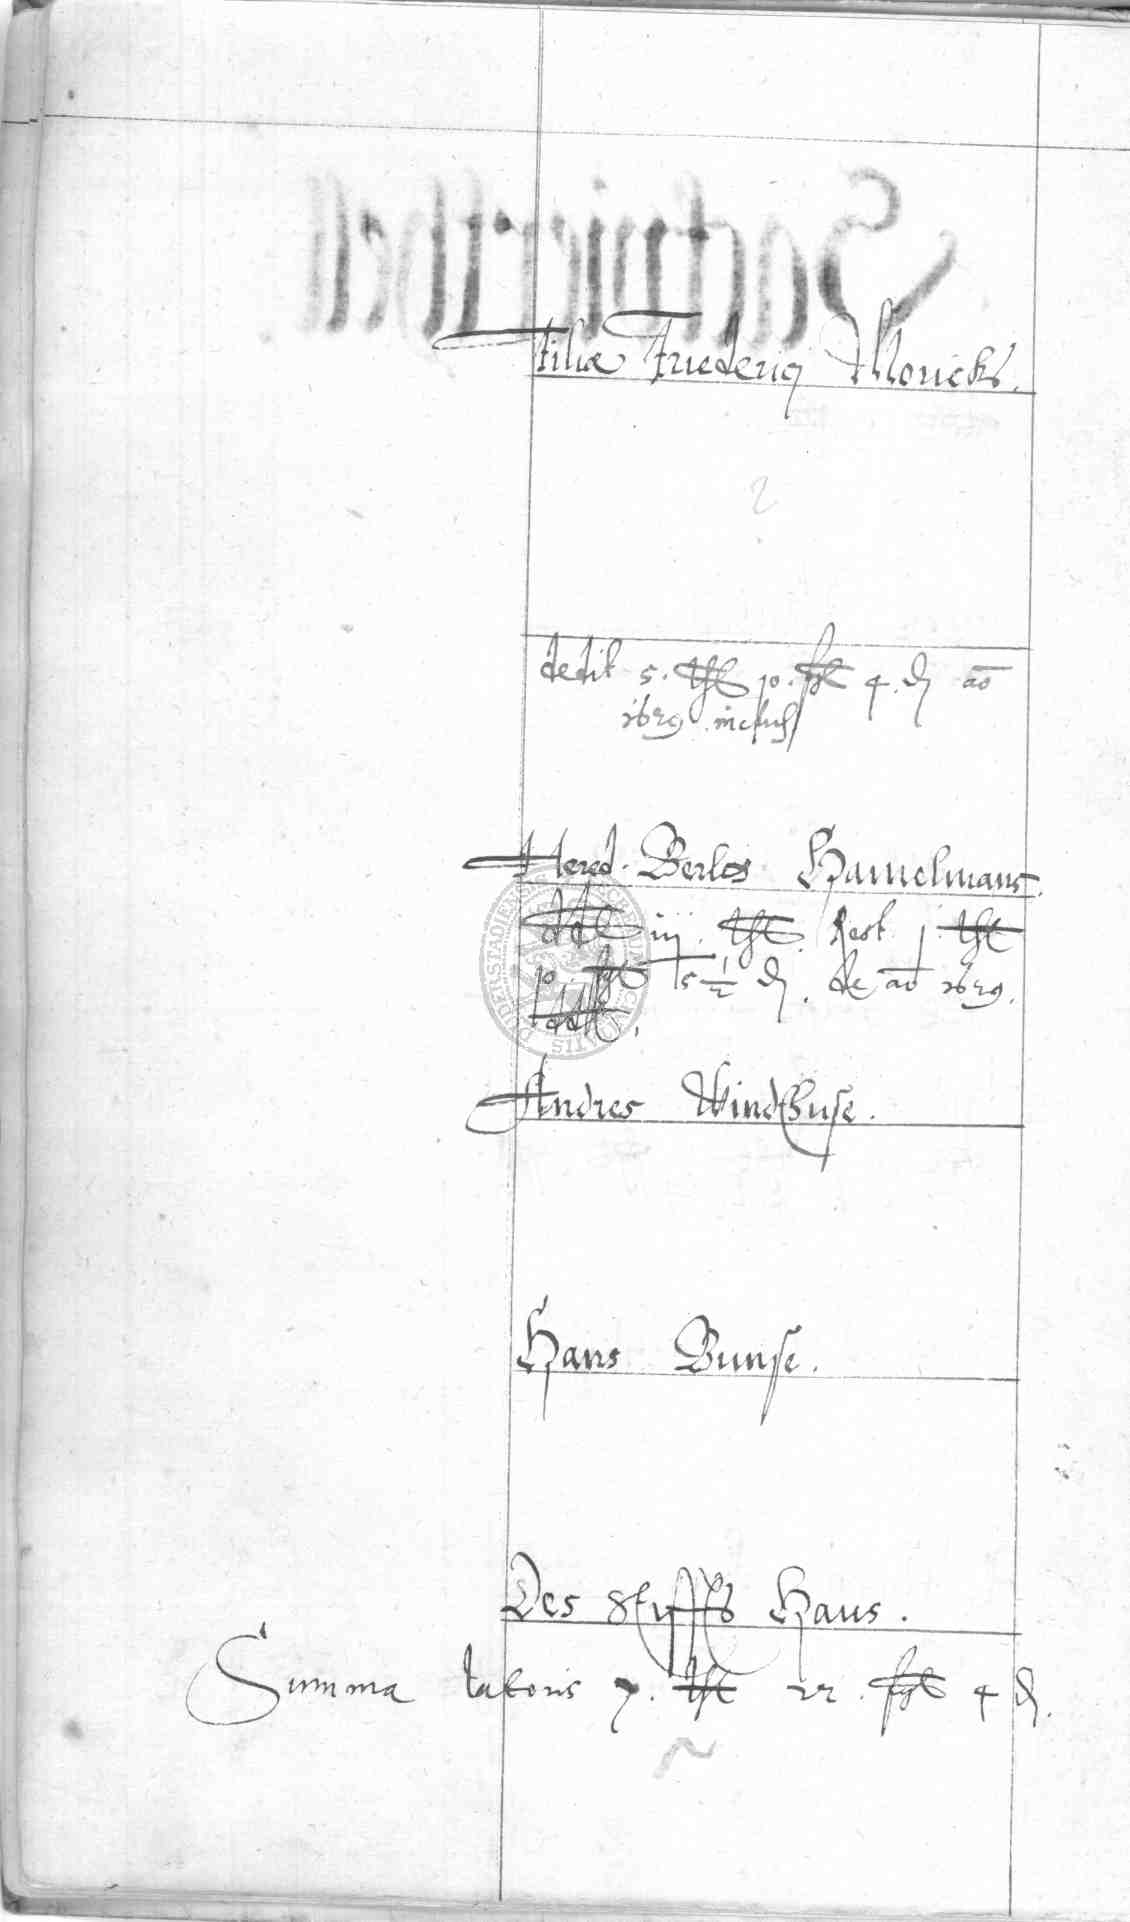 Filiæ Friederici Monichs.
dedit 5. thl 10. ßgl 4. ₰ aō
1629 inclus
Hered. Berlds Hamelmans.
ddt iij. thl. Rest j thl
10. ßgl 5 1/2 ₰. de aō 1629.
ddt.
Andres Windhuse.
Hans Bunse.
Des Styffts Haus.
Summa lateris 7. thl 22. ßgl 4 ₰.